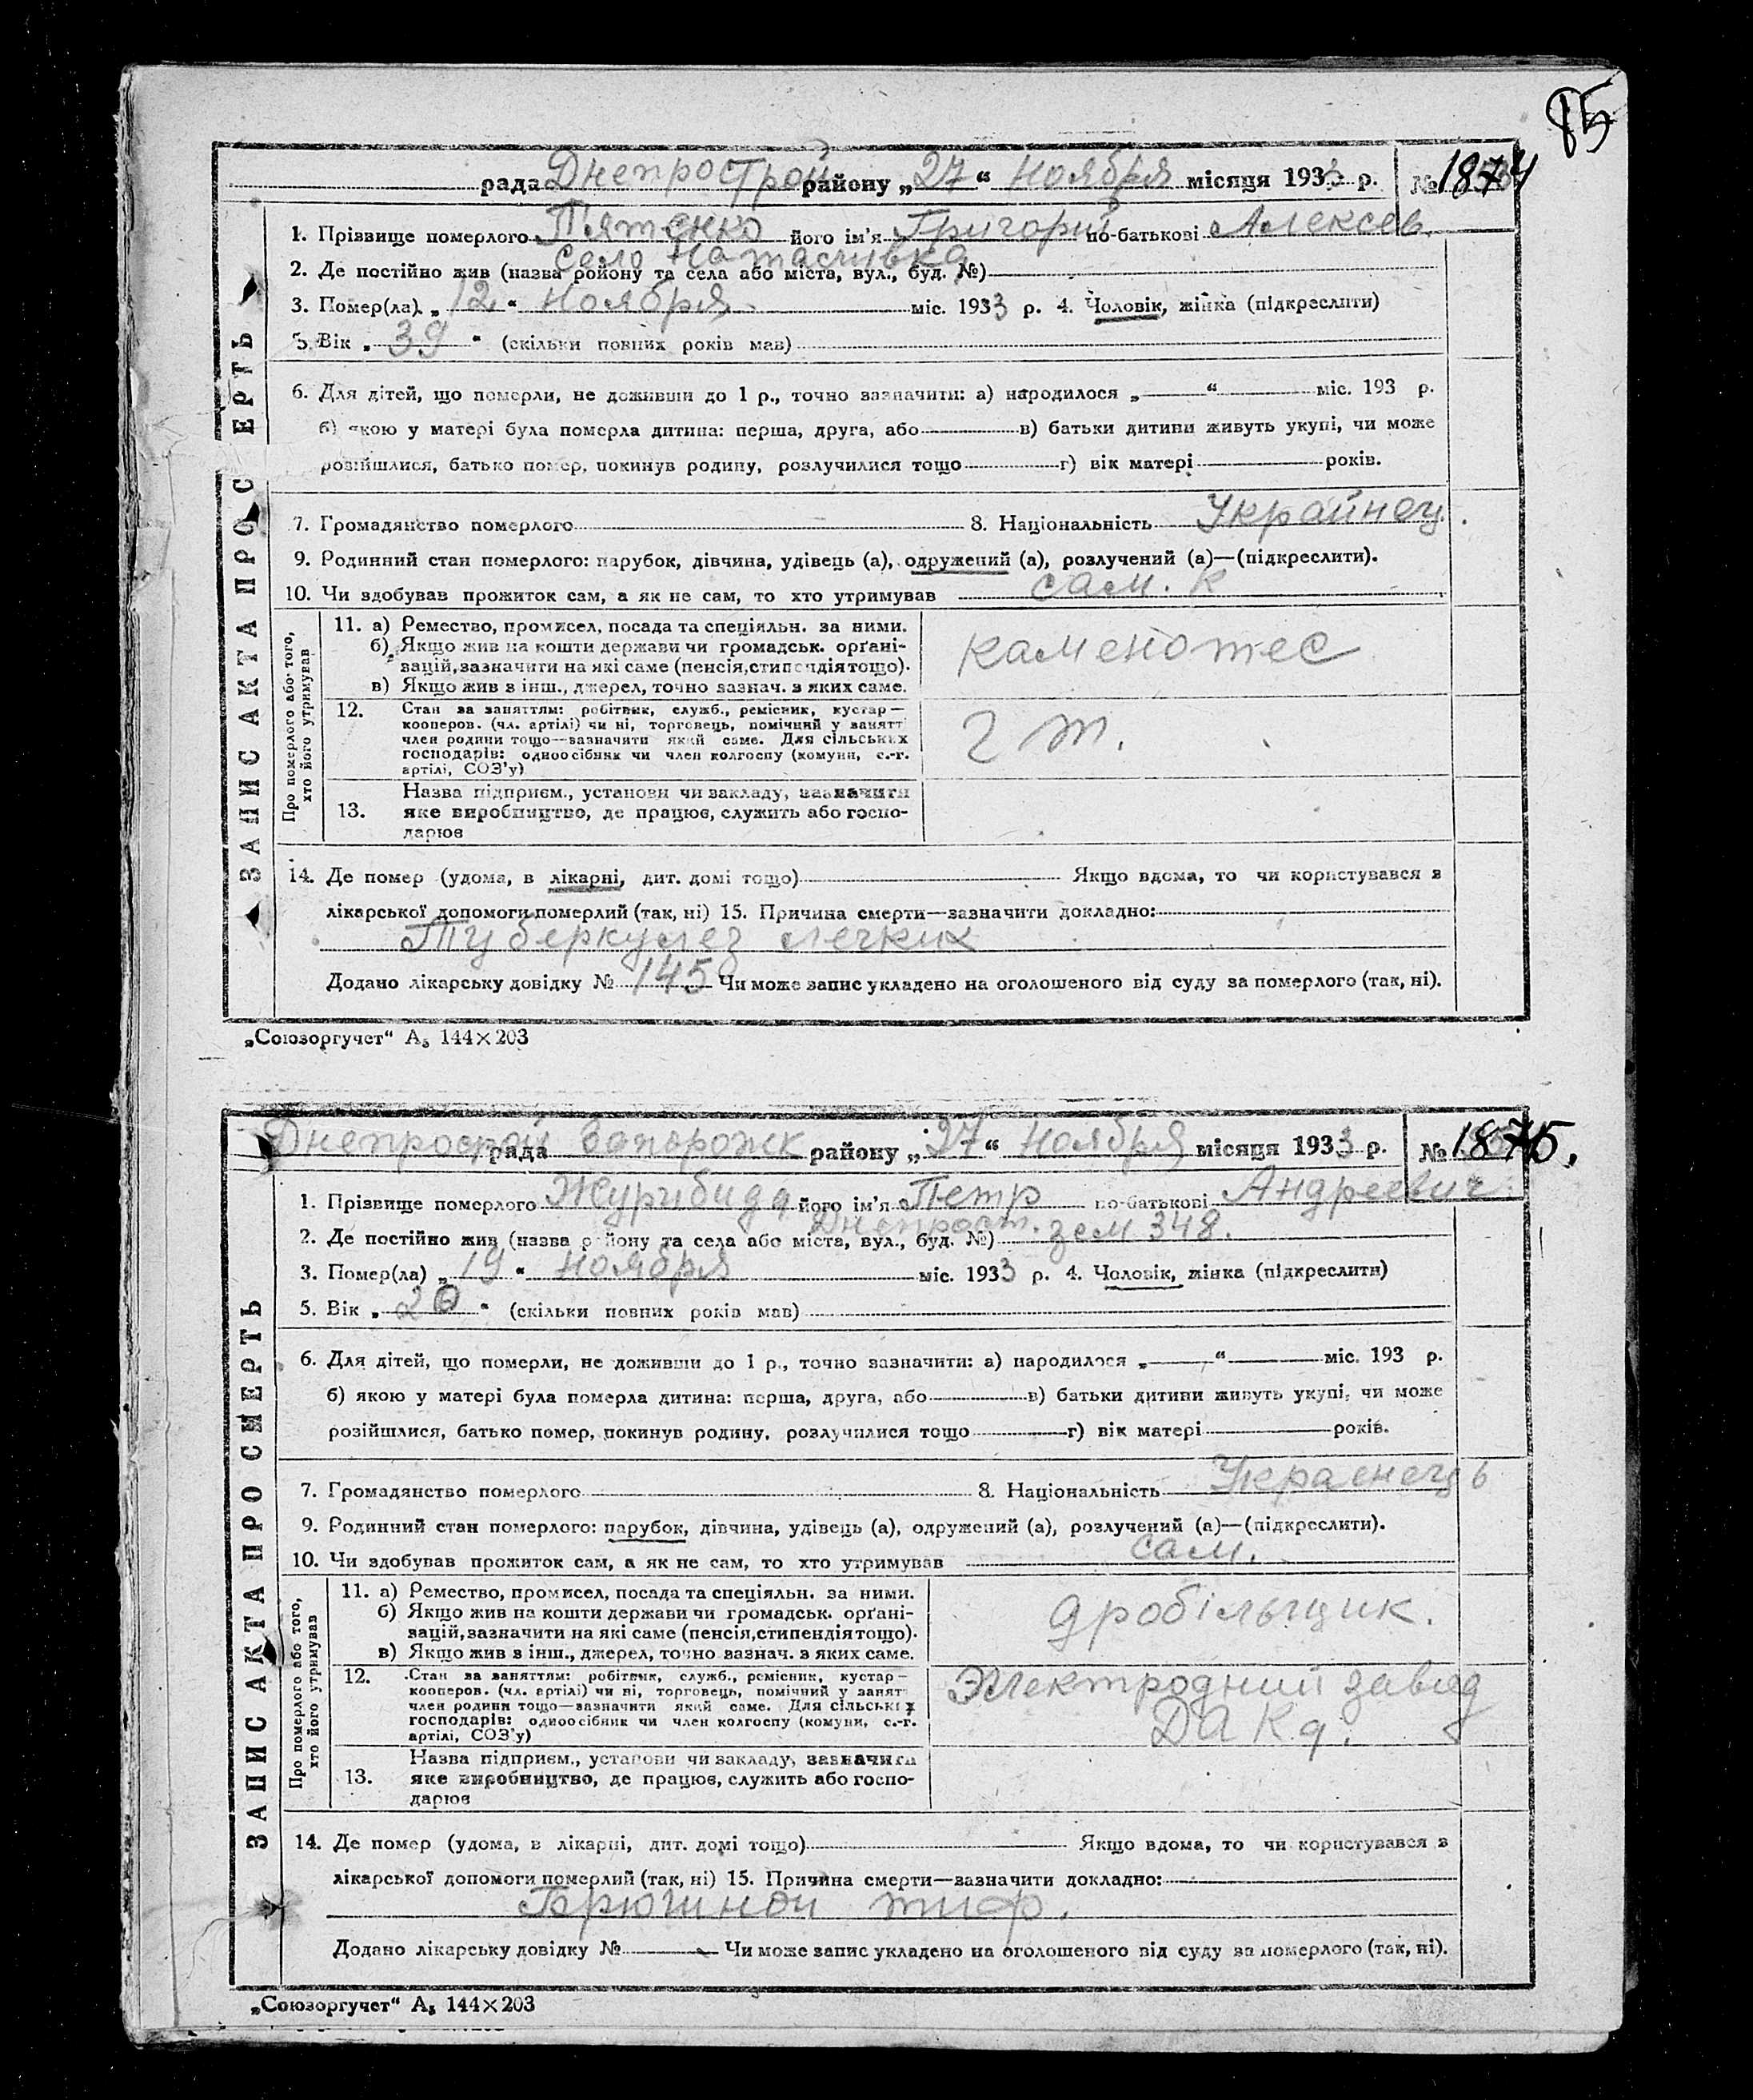 85
рада Днепрострой району „27“ Ноября місяця 1933 р. № 1874
1. Прізвище померлого Пятенко його ім'я Григорий по-батькові Алексев.
2. Де постійно жив (назва району та села або міста, вул., буд. №) село
3. Помер(ла) „12“ Ноября міс. 1933 р. 4. Чоловік, жінка (підкреслити)
5. Вік „39“ (скільки повних років мав)
6. Для дітей, що померли, не доживши до 1 р., точно зазначити: а) народилося „ “ міс. 193 р.
б) якою у матері була померла дитина: перша, друга, або в) батьки дитини живуть укупі, чи може
розійшлися, батько помер, покинув родину, розлучилися тощо г) вік матері років.
7. Громадянство померлого 8. Національність Украйнец.
9. Родинний стан померлого: парубок, дівчина, удівець (а), одружений (а), розлучений (а)—(підкреслити).
10. Чи здобував прожиток сам, а як не сам, то хто утримував сам. к
ЗАПИС АКТА ПРО СМЕРТЬ
Про померлого або того, хто його утримував
11. а) Ремество, промисел, посада та спеціяльн. за ними.
б) Якщо жив на кошти держави чи громадськ. орґані-
зацій, зазначити на які саме (пенсія, стипендія тощо).
в) Якщо жив з інш., джерел, точно зазнач. з яких саме.
каменотес
12. Стан за заняттям: робітник, служб., ремісник, кустар—
кооперов. (чл. артілі) чи ні, торговець, помічний у занятт
член родини тощо—зазначити який саме. Для сільських
господарів: одноосібник чи член колгоспу (комуни, с.-г.
артілі, СОЗ'у)
2 т.
13. Назва підприєм., установи чи закладу, зазначити
яке виробництво, де працює, служить або госпо-
дарює
14. Де помер (удома, в лікарні, дит. домі тощо) Якщо вдома, то чи користувався з
лікарської допомоги померлий (так, ні) 15. Причина смерти—зазначити докладно:
Туберкулез легких
Додано лікарську довідку № 145 Чи може запис укладено на оголошеного від суду за померлого (так, ні).
„Союзоргучет“ А₅ 144×203
Днепрострой рада Запорожск району „27“ Ноября місяця 1933 р. № 1875.
1. Прізвище померлого Журибида його ім'я Петр по-батькові Андреевич
2. Де постійно жив (назва району та села або міста, вул., буд. №) Днепрост. зем 348.
3. Помер(ла) „19“ Ноября міс. 1933 р. 4. Чоловік, жінка (підкреслити)
5. Вік „20“ (скільки повних років мав)
6. Для дітей, що померли, не доживши до 1 р., точно зазначити: а) народилося „ “ міс. 193 р.
б) якою у матері була померла дитина: перша, друга, або в) батьки дитини живуть укупі, чи може
розійшлися, батько помер, покинув родину, розлучилися тощо г) вік матері років.
7. Громадянство померлого 8. Національність Украенець
9. Родинний стан померлого: парубок, дівчина, удівець (а), одружений (а), розлучений (а)—(підкреслити).
10. Чи здобував прожиток сам, а як не сам, то хто утримував сам.
ЗАПИС АКТА ПРО СМЕРТЬ
Про померлого або того, хто його утримував
11. а) Ремество, промисел, посада та спеціяльн. за ними.
б) Якщо жив на кошти держави чи громадськ. орґані-
зацій, зазначити на які саме (пенсія, стипендія тощо).
в) Якщо жив з інш., джерел, точно зазнач. з яких саме.
дробільщик.
12. Стан за заняттям: робітник, служб., ремісник, кустар—
кооперов. (чл. артілі) чи ні, торговець, помічний у занятт
член родини тощо—зазначити який саме. Для сільських
господарів: одноосібник чи член колгоспу (комуни, с.-г.
артілі, СОЗ'у)
Электродний завод
ДАКа.
13. Назва підприєм., установи чи закладу, зазначити
яке виробництво, де працює, служить або госпо-
дарює
14. Де помер (удома, в лікарні, дит. домі тощо) Якщо вдома, то чи користувався з
лікарської допомоги померлий (так, ні) 15. Причина смерти—зазначити докладно:
Брюшной тиф.
Додано лікарську довідку № Чи може запис укладено на оголошеного від суду за померлого (так, ні).
„Союзоргучет“ А₅ 144×203